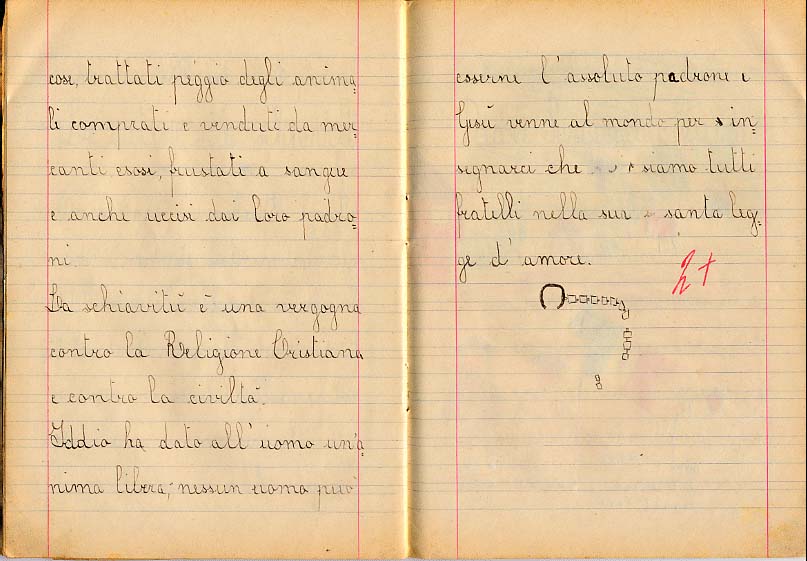 cose, trattati peggio degli anima=
li comprati e venduti da mer=
canti esosi, frustati a sangue
e anche uccisi dai loro padro=
ni.
La schiavitù è una vergogna
contro la Religione Cristiana
e contro la civiltà.
Iddio ha dato all'uomo un'a=
nima libera, nessun uomo può
esserne l'assoluto padrone e
Gesù venne al mondo per in=
segnarci che siamo tutti
fratelli nella sua santa leg=
ge d'amore.